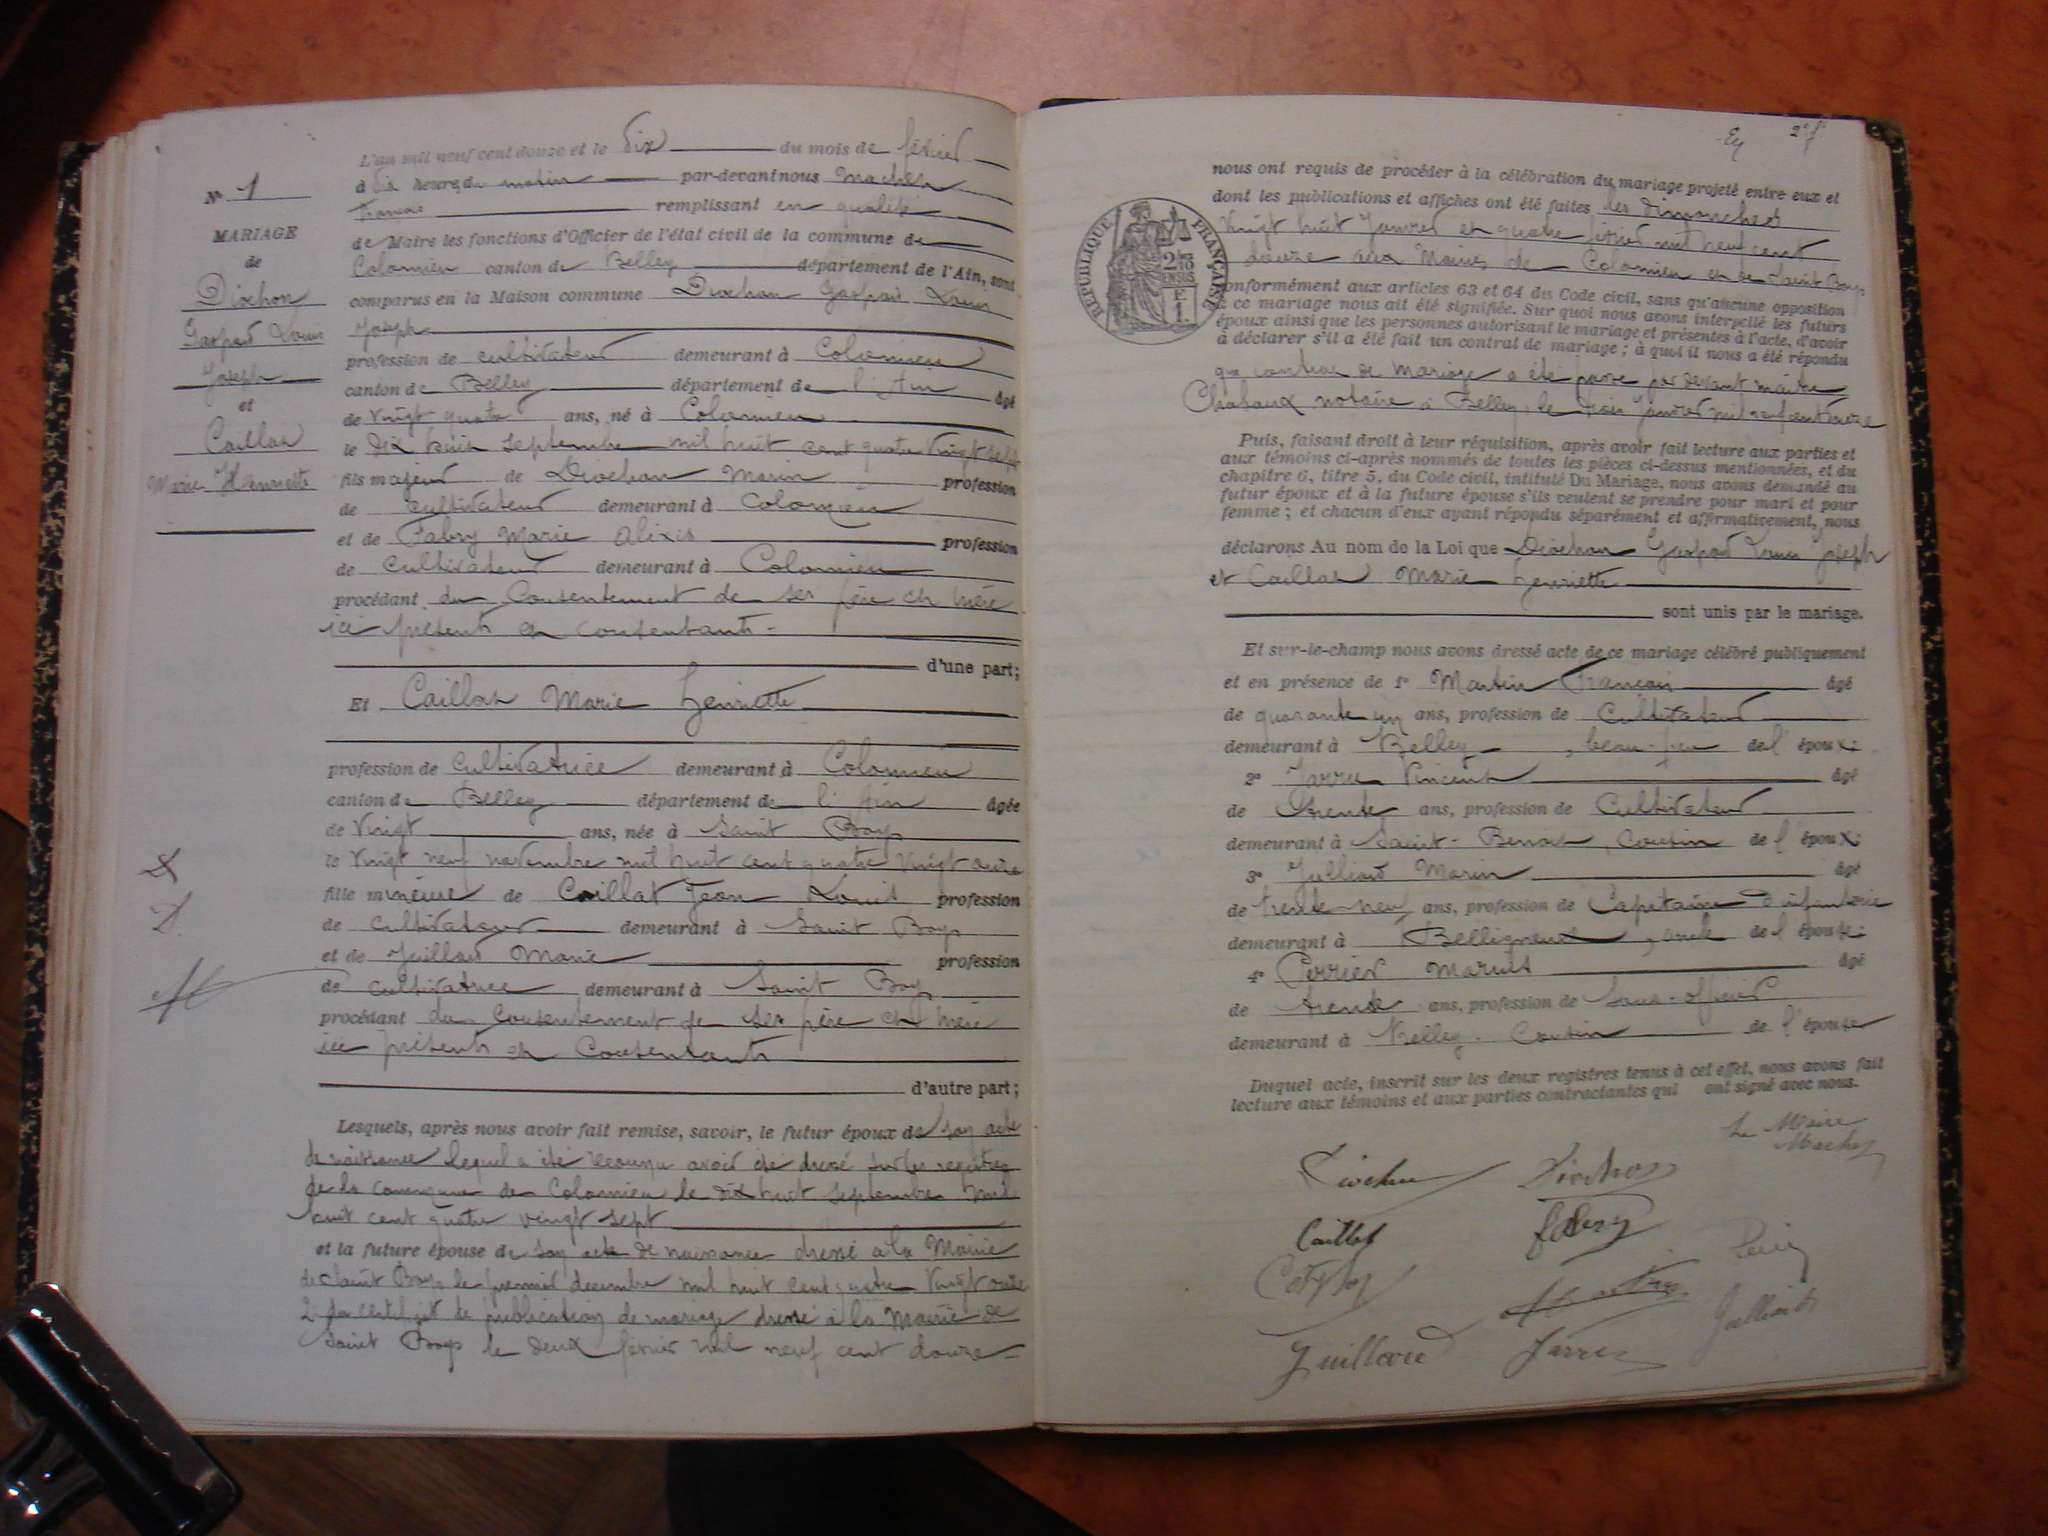 N° 1
MARIAGE
de
Diochon
Gaspard Louis
Joseph
et
Caillat
Marie Henriette
L'an mil neuf cent douze et le Dix du mois de février
à dix heures du matin par-devant nous
François remplissant en qualité
de Maire les fonctions d'Officier de l'état civil de la commune de
Colomieu canton de Belley département de l'Ain, sont
comparus en la Maison commune Diochon Gaspard Louis
Joseph
profession de cultivateur demeurant à Colomieu
canton de Belley département de l'Ain âgé
de vingt-quatre ans, né à Colomieu
le dix huit septembre mil huit cent quatre vingt sept
fils majeur de Diochon Marin profession
de cultivateur demeurant à Colomieu
et de Fabry Marie Alixis profession
de cultivateur demeurant à Colomieu
procédant du Consentement de ses père et mère
ici présents et consentants -
d'une part;
Et Caillat Marie henriette
profession de cultivatrice demeurant à Colomieu
canton de Belley département de l'Ain âgée
de vingt ans, née à Saint Boys
le vingt neuf novembre mil huit cent quatre vingt onze
fille mineure de Caillat Jean Louis profession
de cultivateur demeurant à Saint Boys
et de Juillard Marie profession
de cultivatrice demeurant à Saint Boys
procédant du Consentement de ses père et mère
ici présents et Consentants
d'autre part;
Lesquels, après nous avoir fait remise, savoir, le futur époux de son acte
de naissance lequel a été reconnu avoir été dressé sur les registres
de la commune de Colomieu le dix huit septembre mil
huit cent quatre vingt sept
et la future épouse de son acte de naissance dressé à la Mairie
de Saint Boys le premier décembre mil huit cent quatre vingt onze
2° du certificat de publication de mariage dressé à la Mairie de
Saint Boys le deux février mil neuf cent douze -
2e f
RÉPUBLIQUE FRANÇAISE
nous ont requis de procéder à la célébration du mariage projeté entre eux et
dont les publications et affiches ont été faites les dimanches
vingt huit Janvier et quatre février mil neuf cent
douze aux Mairies de Colomieu et de Saint Boys
conformément aux articles 63 et 64 du Code civil, sans qu'aucune opposition
à ce mariage nous ait été signifiée. Sur quoi nous avons interpellé les futurs
époux ainsi que les personnes autorisant le mariage et présentes à l'acte, d'avoir
à déclarer s'il a été fait un contrat de mariage; à quoi il nous a été répondu
que contrat de mariage a été passé par devant maître
Chabaux notaire à Belley le Janvier mil neuf cent douze
Puis, faisant droit à leur réquisition, après avoir fait lecture aux parties et
aux témoins ci-après nommés de toutes les pièces ci-dessus mentionnées, et du
chapitre 6, titre 5, du Code civil, intitulé Du Mariage, nous avons demandé au
futur époux et à la future épouse s'ils veulent se prendre pour mari et pour
femme; et chacun d'eux ayant répondu séparément et affirmativement, nous
déclarons Au nom de la Loi que Diochon Gaspard Louis Joseph
et Caillat Marie henriette
sont unis par le mariage.
Et sur-le-champ nous avons dressé acte de ce mariage célébré publiquement
et en présence de 1° Martin François âgé
de quarante un ans, profession de Cultivateur
demeurant à Belley, beau-frère de l'époux
2° Jarrin Vincent âgé
de trente ans, profession de Cultivateur
demeurant à Saint-Benoit, Cousin de l'époux
3° Juilliard Marin âgé
de trente neuf ans, profession de Capitaine d'infanterie
demeurant à Belligneux, oncle de l'épouse
4° Perrier Marius âgé
de trente ans, profession de Sous-officier
demeurant à Belley. Cousin de l'épouse
Duquel acte, inscrit sur les deux registres tenus à cet effet, nous avons fait
lecture aux témoins et aux parties contractantes qui ont signé avec nous.
Le Maire
Diochon
Caillat
Fabry